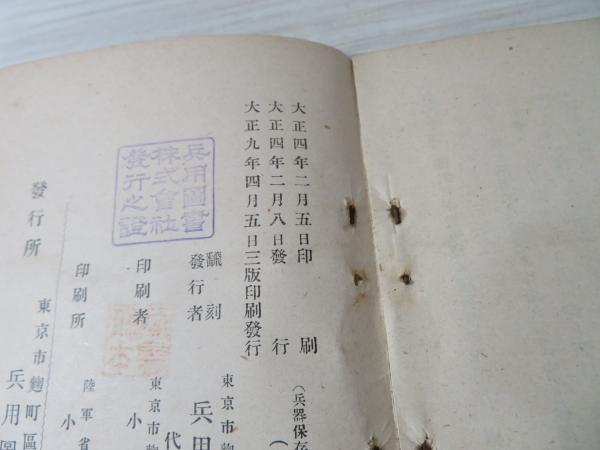 大正四年二月五日印刷
大正四年二月八日發行
大正九年四月五日三版印刷發行
(兵器保存
飜刻
發行者
東京市麹
兵用
代
印刷者
東京市麹
小
印刷所
陸軍省
小
發行所
東京市麹町區
兵用圖
兵用圖書
株式會社
發行之證